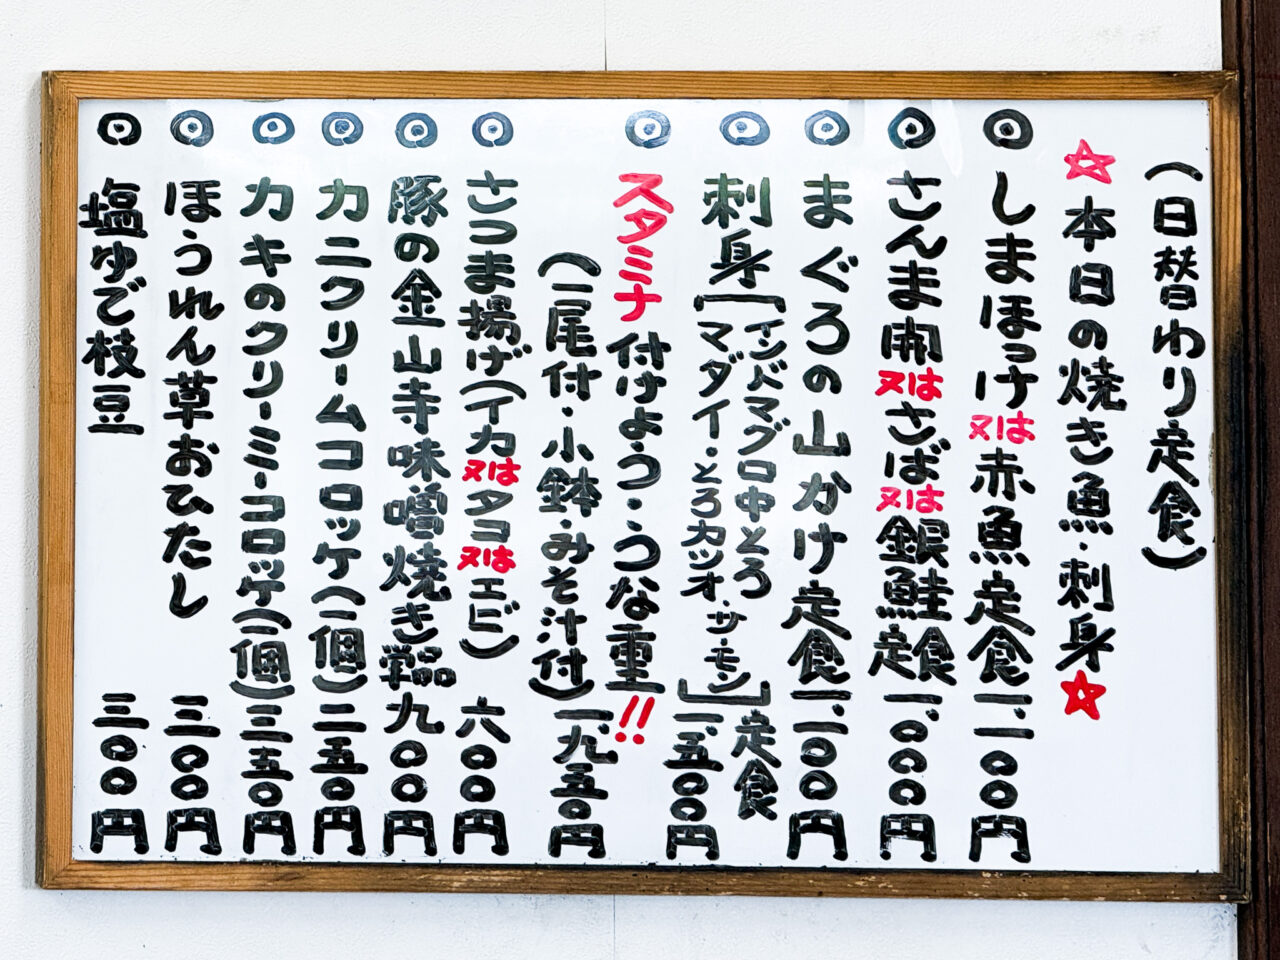 (日替わり定食)
☆本日の焼き魚・刺身☆
◎しまほっけ又は赤魚定食一、一〇〇円
◎さんま開又はさば又は銀鮭定食一、〇〇〇円
◎まぐろの山かけ定食一、一〇〇円
◎刺身[インドマグロ中とろ マダイ・とろカツオ・サーモン]定食一、五〇〇円
◎スタミナ付けよう・うな重!!
(一尾付・小鉢・みそ汁付)一、九五〇円
◎さつま揚げ(イカ又はタコ又はエビ)六〇〇円
◎豚の金山寺味噌焼き単品九〇〇円
◎カニクリームコロッケ(一個)二五〇円
◎カキのクリーミーコロッケ(一個)三五〇円
◎ほうれん草おひたし三〇〇円
◎塩ゆで枝豆三〇〇円